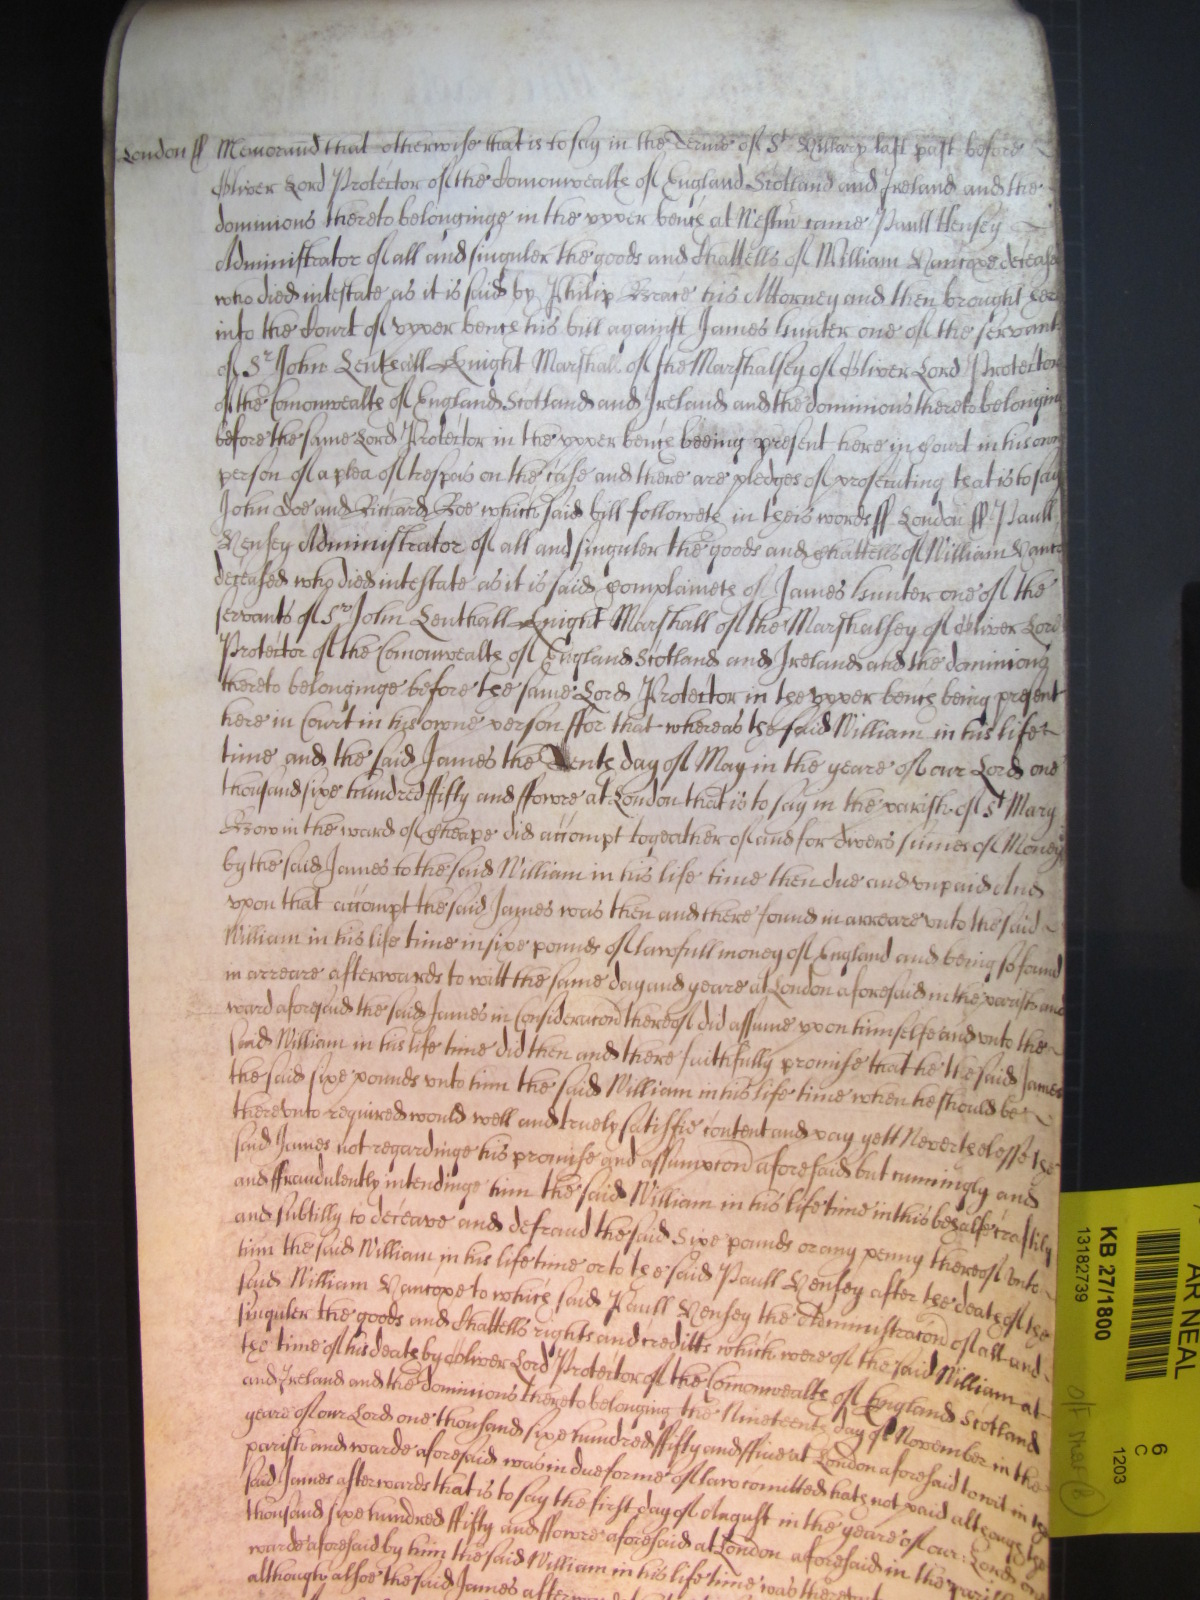 London ss Memorand that otherwise that is to say in the Terme of St Hillary last past before
Oliver Lord Protector of the Comonwealth of England Scotland and Ireland and the
dominions thereto belonginge in the upper bench at Westmr came Paull Hensey
Administrator of all and singuler the goods and Chattells of William deceased
who died intestate as it is said by Philip his Attorney and then brought here
into the Court of upper bench his bill against James Hunter one of the servants
of Sr John Lenthall Knight Marshall of the Marshalsey of Oliver Lord Protector
of the Comonwealth of England Scotland and Ireland and the dominions thereto belonging
before the same Lord Protector in the upper bench beeing present here in Court in his owne
person of a plea of trespas on the case and there are pledges of prosecuting that is to say
John Doe and Richard Roe which said bill followeth in theis words ss London ss Paull
Hensey Administrator of all and singuler the goods and Chattells of William
deceased who died intestate as it is said complaineth of James Hunter one of the
servants of Sr John Lenthall Knight Marshall of the Marshalsey of Oliver Lord
Protector of the Comonwealth of England Scotland and Ireland and the dominions
thereto belonginge before the same Lord Protector in the upper bench being present
here in Court in his owne person ffor that whereas the said William in his life
time and the said James the Tenth day of May in the yeare of our Lord one
thousand sixe hundred ffifty and ffowre at London that is to say in the parish of St Mary
Bow in the ward of Cheape did accompt togeather of and for divers sumes of Money
by the said James to the said William in his life time then due and unpaid And
upon that accompt the said James was then and there found in arreare unto the said
William in his life time in sixe pounds of lawfull money of England and being so found
in arreare afterwards to witt the same day and yeare at London aforesaid in the parish and
ward aforesaid the said James in Consideracon thereof did assume upon himselfe and unto the
said William in his life time did then and there faithfully promise that he the said James
the said sixe pounds unto him the said William in his life time when he should be
thereunto required would well and truely satisfie content and pay yett Neverthelesse the
said James not regardinge his promise and assumpcon aforesaid but cunningly and
and ffraudulently intendinge him the said William in his life time in this behalfe craftily
and subtilly to deceave and defraud the said sixe pounds or any penny thereof unto
him the said William in his life time or to the said Paull Hensey after the death of the
said William to which said Paull Hensey the Administracon of all and
singuler the goods and Chattells rights and creditts which were of the said William at
the time of his death by Oliver Lord Protector of the Comonwealth of England Scotland
and Ireland and the dominions thereto belonging the Nineteenth day of November in the
yeare of our Lord one thousand sixe hundred ffifty and ffive at London aforesaid to wit in the
parish and warde aforesaid was in due forme of law comitted hath not paid although the
said James afterwards that is to say the first day of August in the yeare of our Lord one
thousand sixe hundred ffifty and ffowre aforesaid at London aforesaid in the parish
warde aforesaid by him the said William in his life time was thereunto
although alsoe the said James afterwards
AR NEAL
KB 27/1800
13182739
6
C
1203